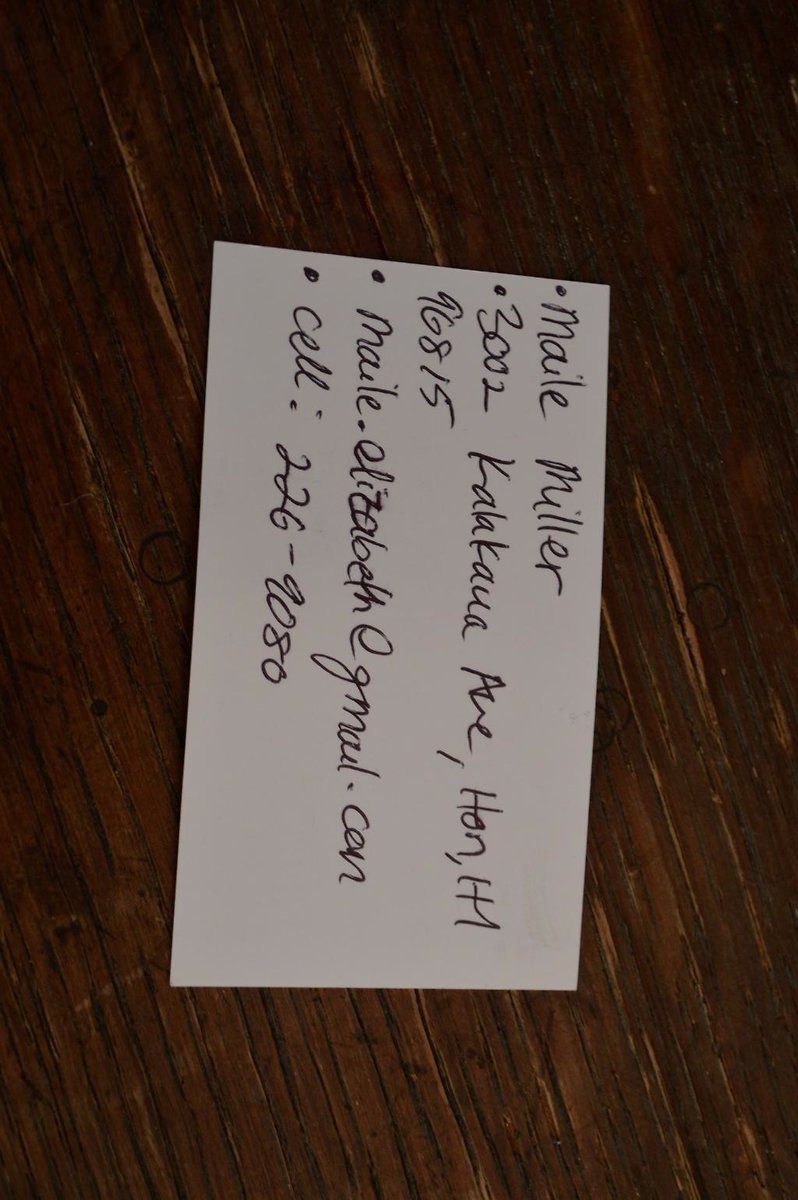 • Maile Miller
• 3002 Kalakaua Ave, Hon, HI
96815
• Maile.elizabeth@gmail.com
• Cell: 226-9080